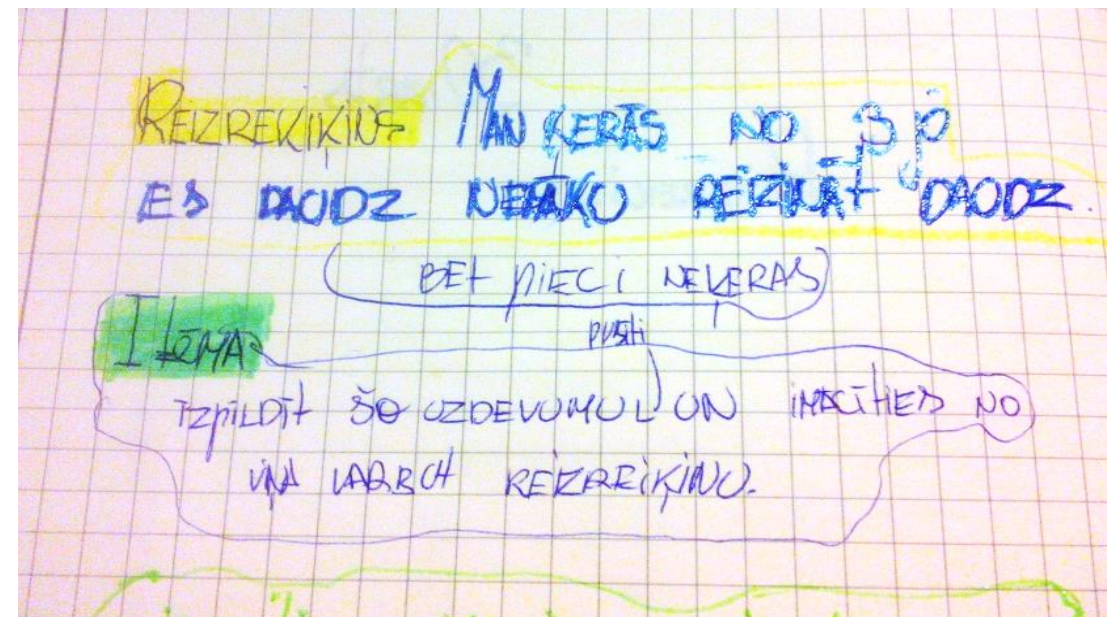 REIZREĶIĶINS MAN ĶERĀS NO 3 jo
ES DAUDZ NEMĀKU REIZINĀT DAUDZ.
BET PIECI NEĶERAS
pusti
I tĒMA
IZPILDĪT ŠO UZDEVUMU UN IMACĪTIES NO
VIŅA REIZREIĶINU.